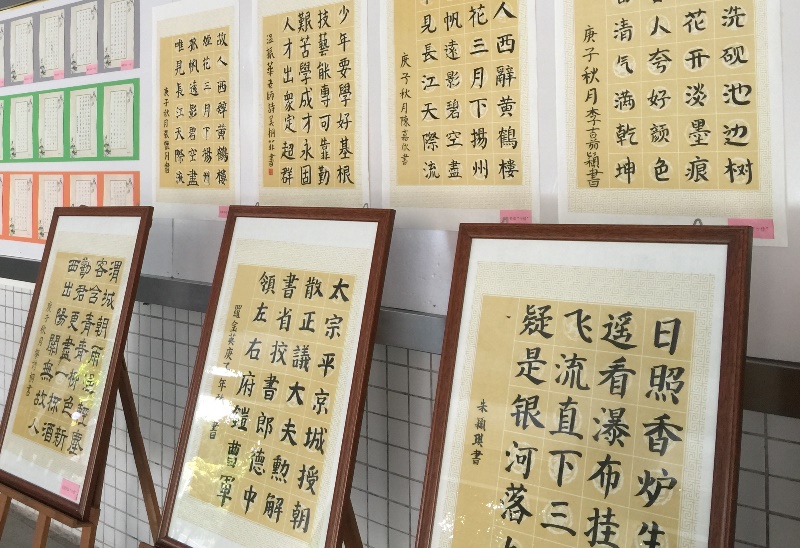 故人西辭黃鶴樓
煙花三月下揚州
孤帆遠影碧空盡
唯見長江天際流
庚子秋月
少年要學好基根
技藝能專可靠勤
艱苦學成才永固
人才出眾定超群
溫振華老師詩吳栩菲書
人西辭黃鶴樓
花三月下揚州
帆遠影碧空盡
見長江天際流
庚子秋月陳嘉欣書
洗砚池边树
花开淡墨痕
人夸好颜色
清气满乾坤
庚子秋月李
渭城朝雨浥輕塵
客舍青青柳色新
勸君更盡一杯酒
西出陽關無故人
庚子秋月
太宗平京城授朝
散正議大夫勳解
書省挍書郎德中
領左右府鎧曹軍
日照香炉生
遥看瀑布挂
飞流直下三
疑是银河落
朱穎琪書